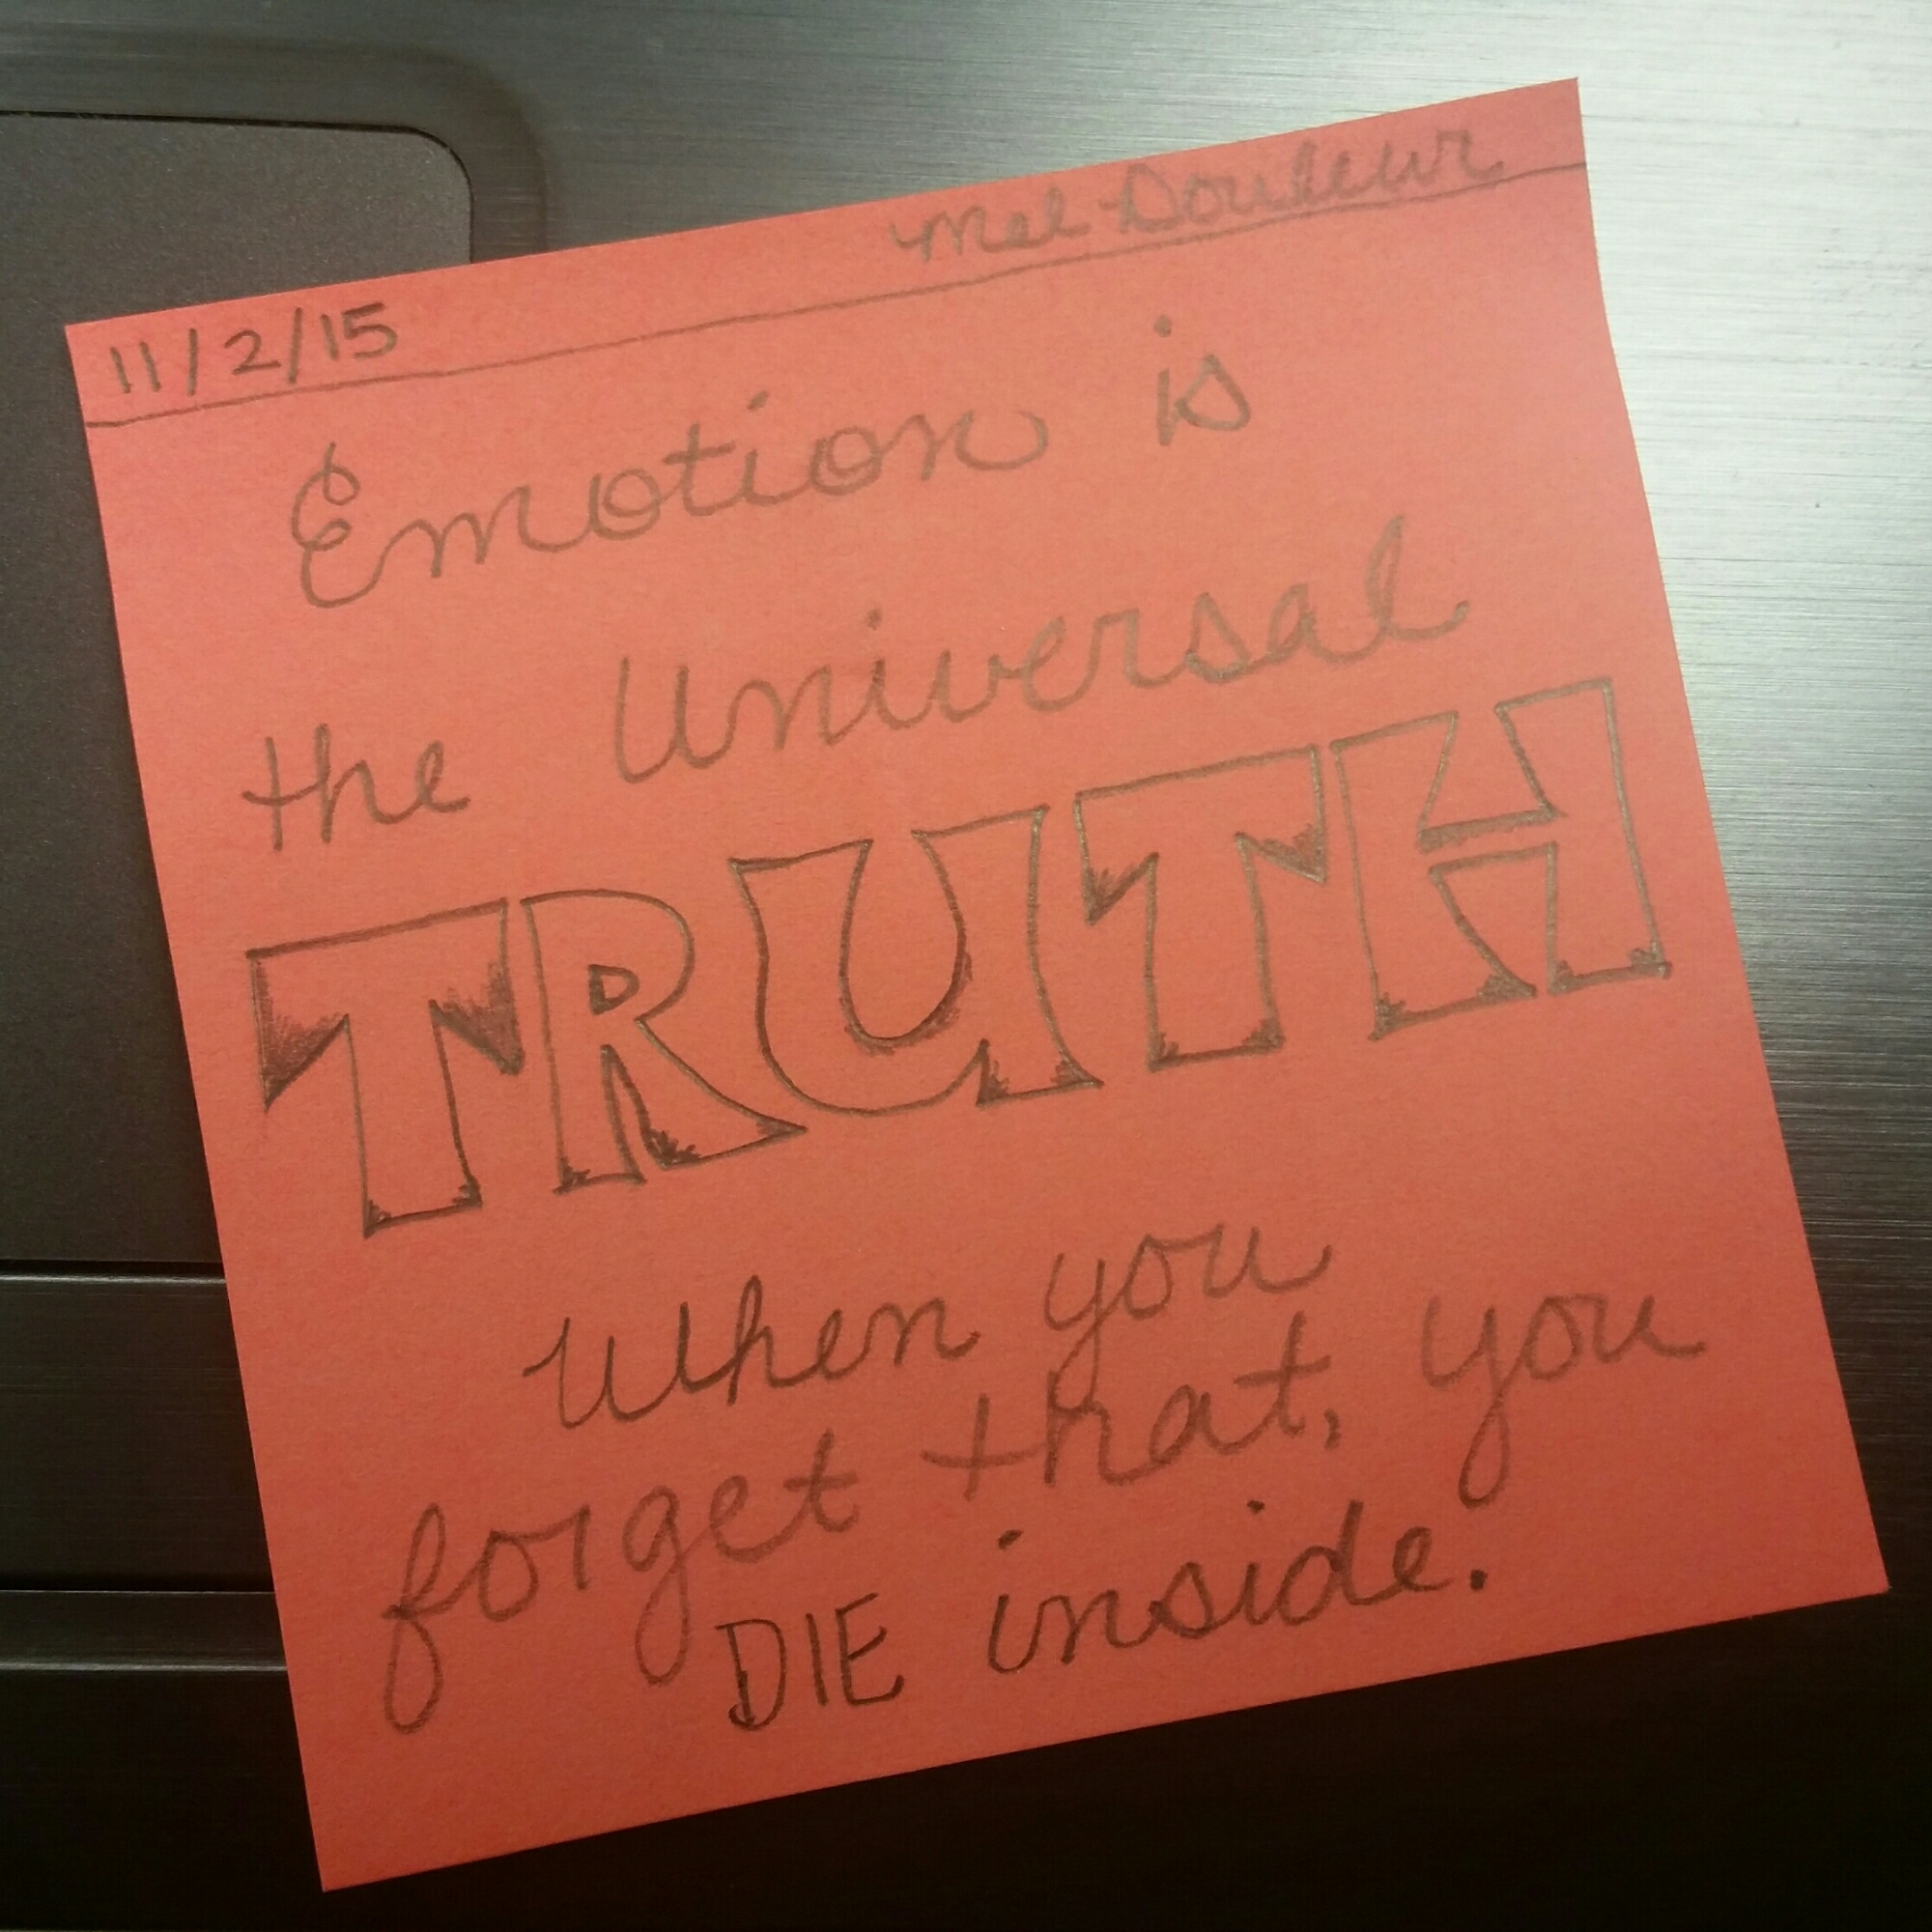 11/2/15 Mel Douleur
Emotion is
the Universal
TRUTH
When you
forget that, you
DIE inside.